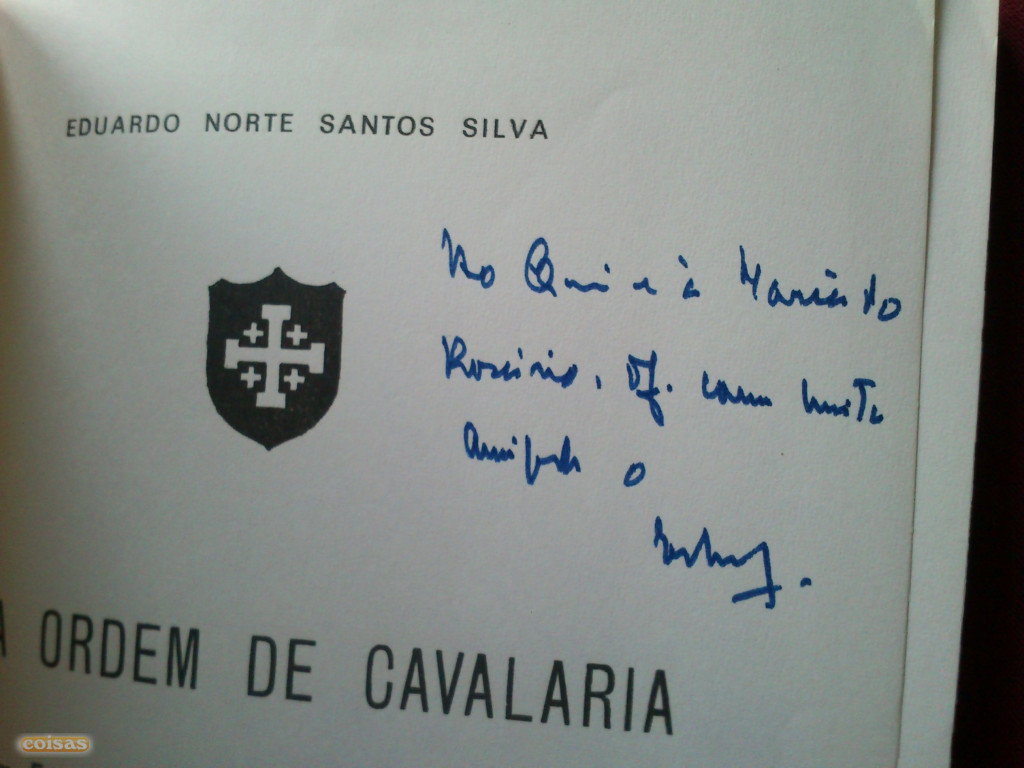 EDUARDO NORTE SANTOS SILVA
Ao Rui e à Maria do
Rosário, of. com muita
amizade o
A ORDEM DE CAVALARIA
coisas